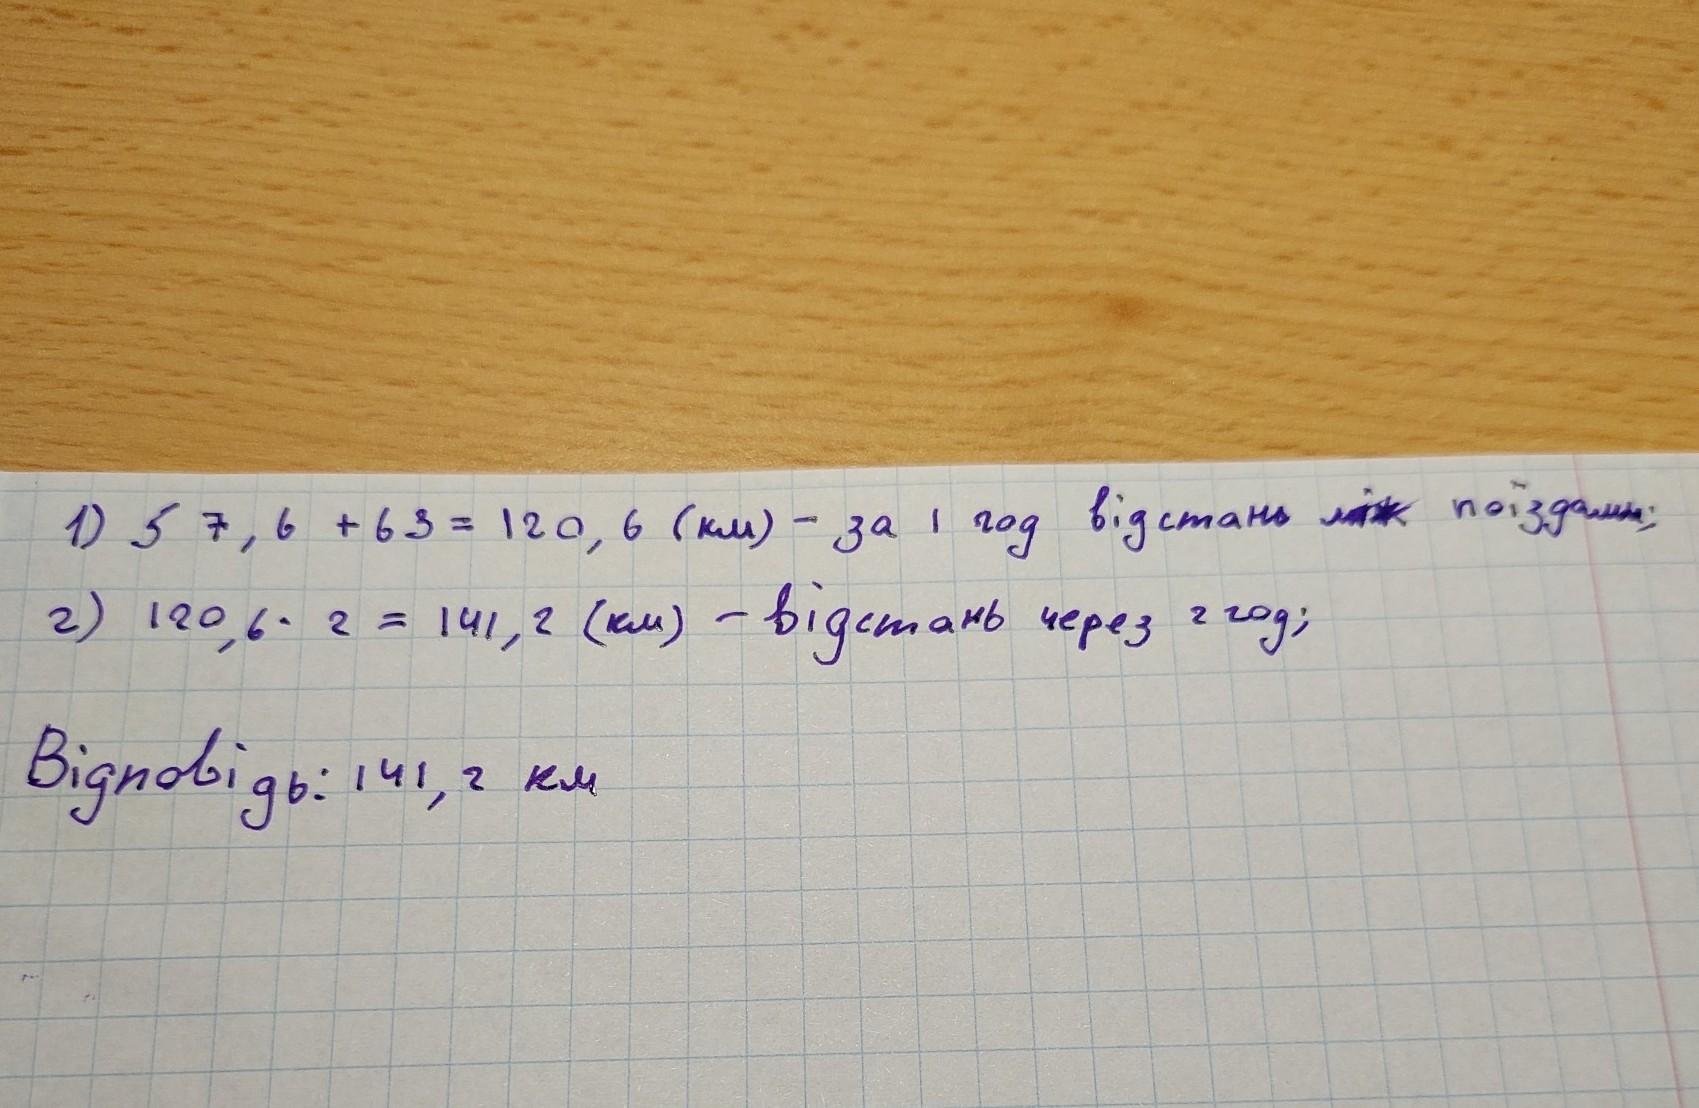 1) 57,6 + 63 = 120,6 (км) - за 1 год відстань між поїздами;
2) 120,6 · 2 = 141,2 (км) - відстань через 2 год;
Відповідь: 141,2 км